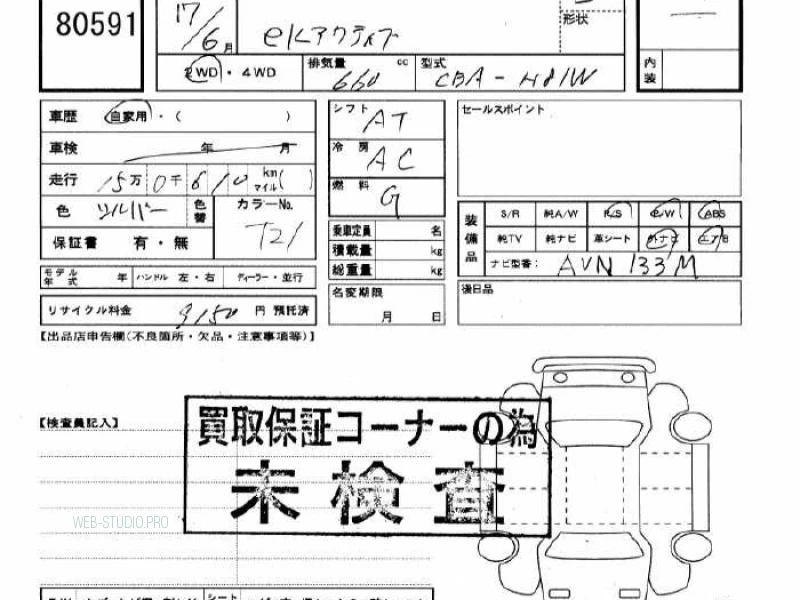 80591
17/6月 ekアクティブ 形状
2WD・4WD 排気量 660 cc 型式 CBA-H81W 内装
車歴 自家用・( )
シフト AT セールスポイント
車検 年 月
冷房 AC
走行 15万0千610 km マイル( )
燃料 G
色 シルバー 色替 カラーNo. T21
装備品 S/R 純A/W P/S P/W ABS
保証書 有・無
乗車定員 名
純TV 純ナビ 革シート 外ナビ
積載量 kg
ナビ型番: AVN 133M
モデル年式 年 ハンドル 左・右 ディーラー・並行
総重量 kg
リサイクル料金 9150 円 預託済
名変期限 月 日
後日品
【出品店申告欄(不良箇所・欠品・注意事項等)】
【検査員記入】
買取保証コーナーの為
未検査
WEB-STUDIO.PRO